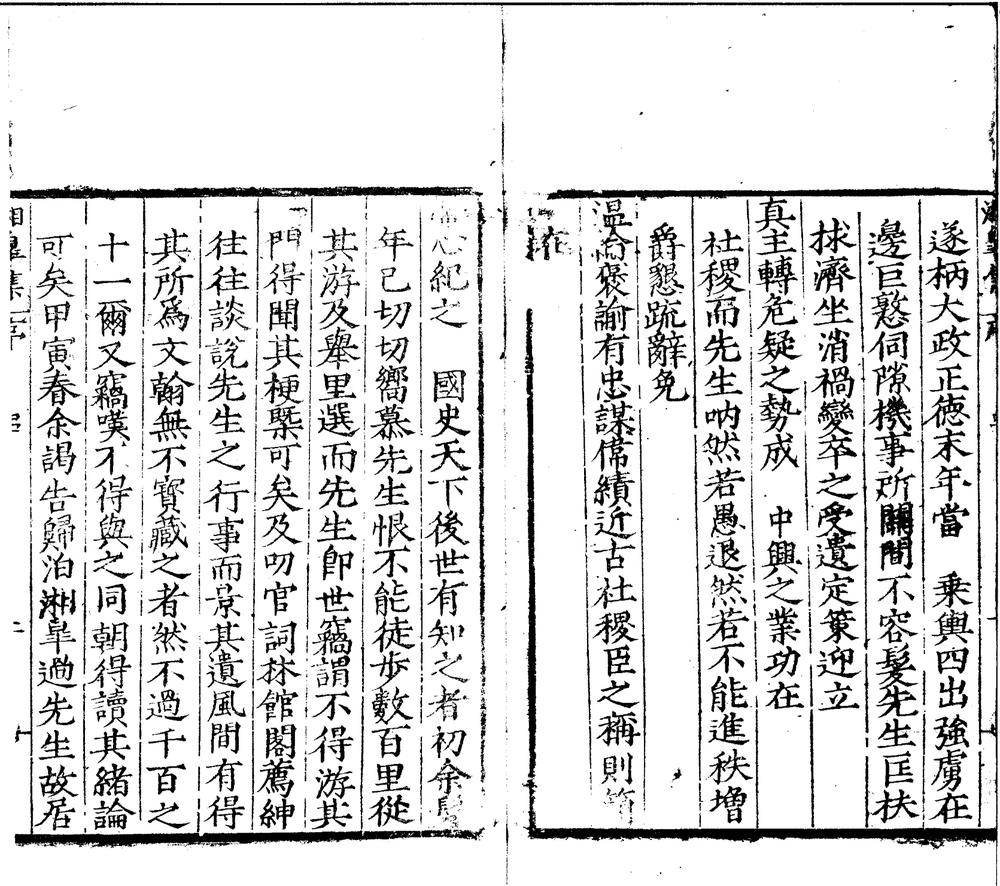 遂柄大政正德末年當　乗輿四出強虜在
邊巨憝伺隙機事所關間不容髮先生匡扶
捄濟坐消禍變卒之受遺定策迎立
真主轉危疑之勢成　中興之業功在
社稷而先生吶然若愚退然若不能進秩增
爵懇疏辭免
溫綸褒諭有忠謀偉績近古社稷臣之稱則
心紀之　國史天下後世有知之者初余
年已切切嚮慕先生恨不能徒步數百里從
其游及舉里選而先生卽世竊謂不得游其
門得聞其梗槩可矣及叨官詞林館閣薦紳
往往談說先生之行事而景其遺風間有得
其所爲文翰無不寳藏之者然不過千百之
十一爾又竊嘆不得與之同朝得讀其緒論
可矣甲寅春余謁告歸泊湘臯過先生故居
湘臯集